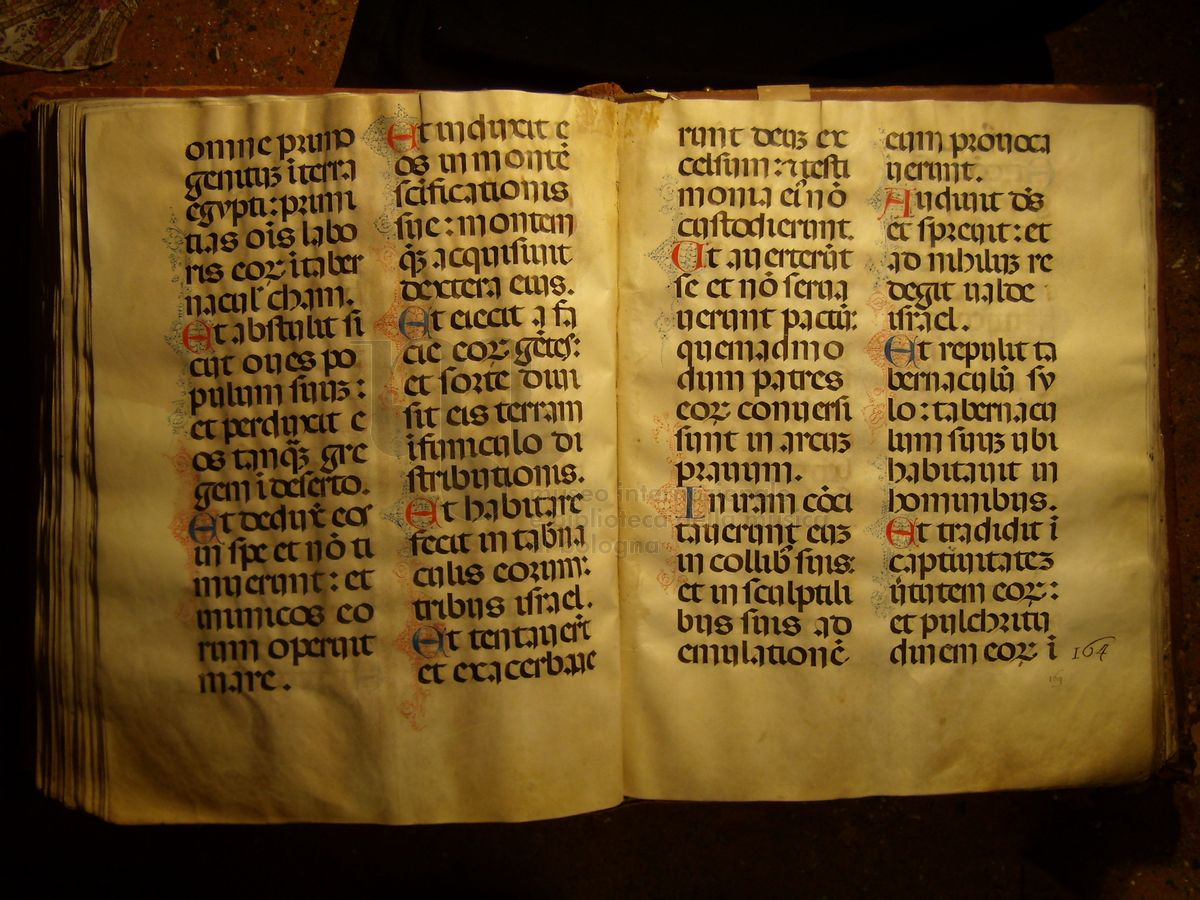 omne primo
genituȝ ī terra
egypti: primi
tias oīs labo
ris eoꝝ ī taber
nacul' cham.
Et abstulit si
cut oues po
pulum suuȝ:
et perduxit e
os tanqȝ gre
gem ī deserto.
Et deduxit eos
in spe et nō ti
muerunt: et
inimicos eo
rum operuit
mare.
Et induxit e
os in montē
scificationis
sue: montem
qȝ acquisiuit
dextera eius.
Et eiecit a fa
cie eoꝝ gētes:
et sorte diui
sit eis terram
ī funiculo di
stributionis.
Et habitare
fecit in tab̄na
culis eorum:
tribus israel.
Et tentauer̄t
et exacerbaue
runt deuȝ ex
celsum: ⁊ testi
monia ei' nō
custodierunt.
Et auerterūt
se et nō serua
uerunt pactū:
quemadmo
dum patres
eoꝝ conuersi
sunt in arcuȝ
prauum.
In iram cōci
tauerunt euȝ
in collib' suis:
et in sculptili
bus suis ad
emulationē
eum prouoca
uerunt.
Audiuit dś
et spreuit: et
ad nihiluȝ re
degit ualde
israel.
Et repulit ta
bernaculū sy
lo: tabernacu
lum suuȝ ubi
habitauit in
hominibus.
Et tradidit ī
captiuitateȝ
uirtutem eoꝝ:
et pulchritu
dinem eoꝝ ī
164
169
museo inter
biblioteca della musica
bologna